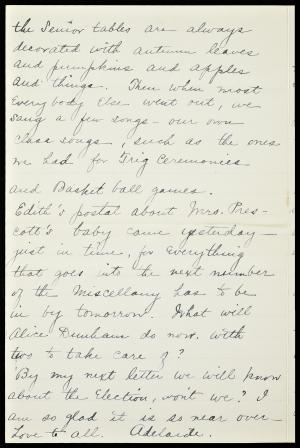 the Senior tables are always
decorated with autumn leaves
and pumpkins and apples
and things. Then when most
everybody else went out, we
sang a few songs - our own
class songs, such as the ones
we had for Trig Ceremonies
and Basket ball games.
Edith's postal about Mrs. Pres-
cott's baby came yesterday -
just in time, for Everything
that goes into the next number
of the Miscellany has to be
in by tomorrow. What will
Alice Dunham do now with
two to take care of?
By my next letter we will know
about the Election, won't we? I
am so glad it is so near over -
Love to all. Adelaide.